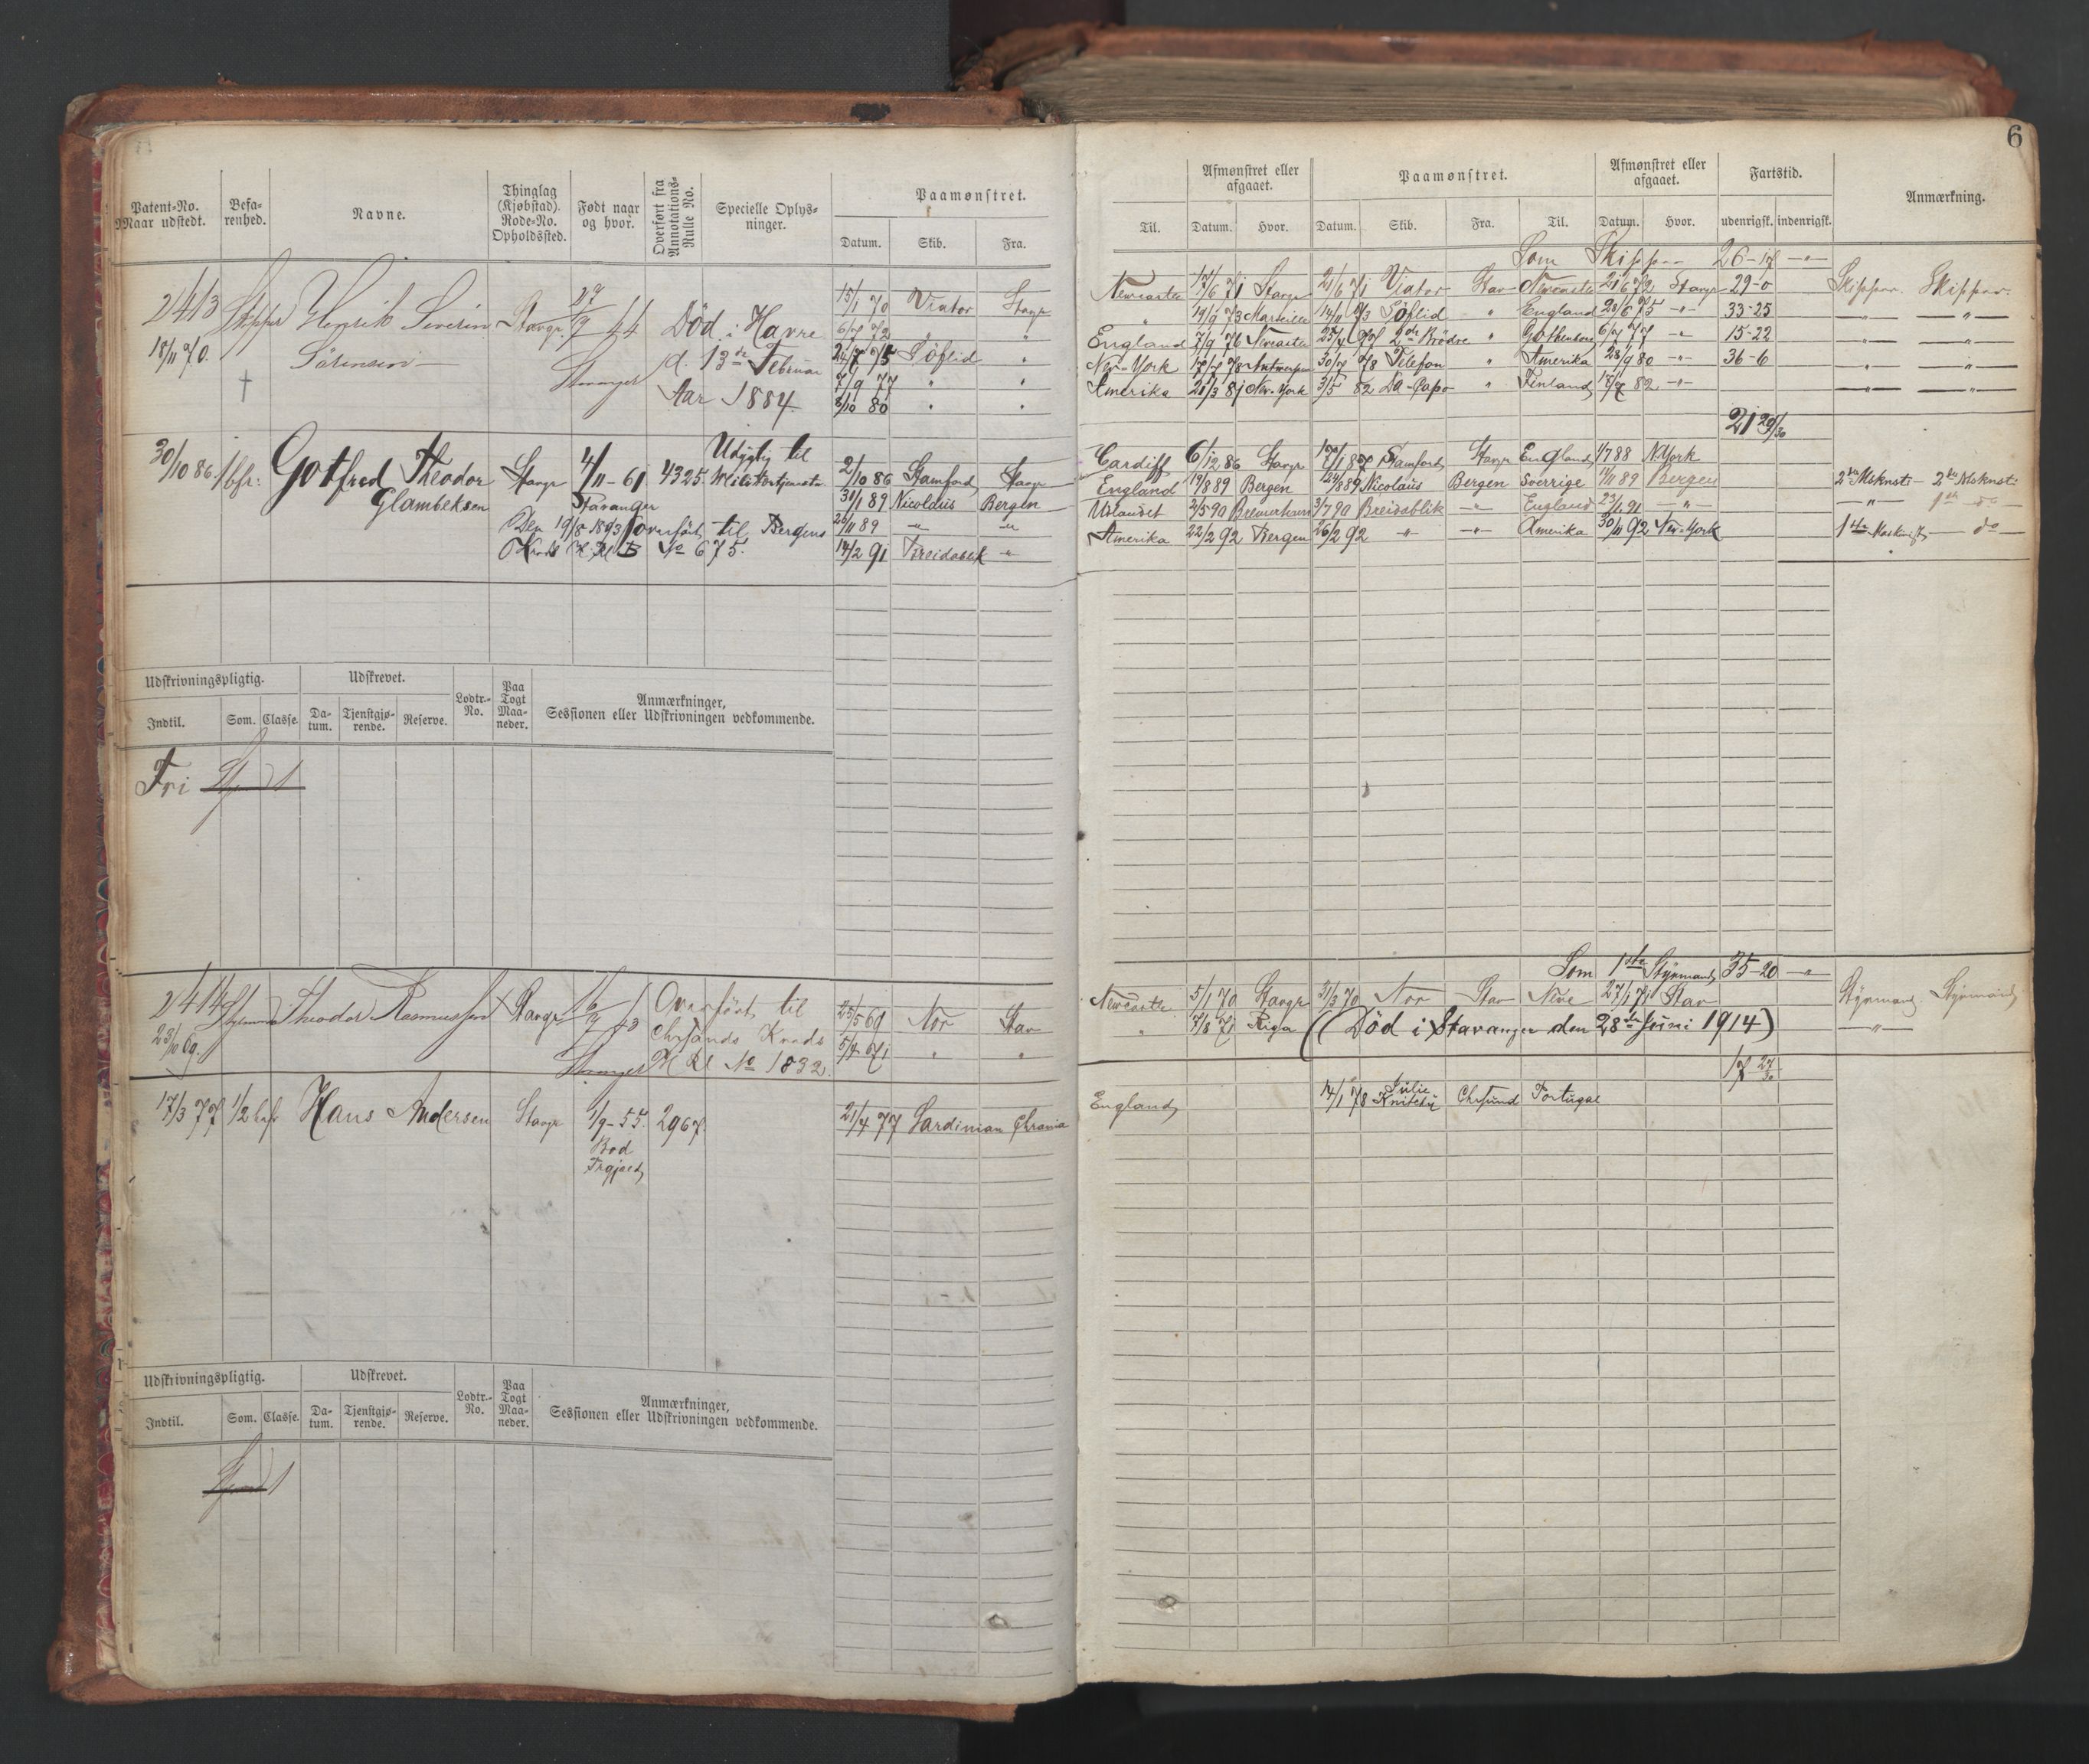 6
Patent-No. Naar udstedt.
Befa-renhed.
Navne.
Thinglag (Kjøbstad). Rode-No. Opholdssted.
Født naar og hvor.
Overført fra Annotations-Rulle No.
Specielle Oplys-ninger.
Paamønstret.
Datum. Skib. Fra.
Til.
Afmønstret eller afgaaet.
Datum. Hvor.
Paamønstret.
Datum. Skib. Fra. Til.
Afmønstret eller afgaaet.
Datum. Hvor.
Fartstid.
udenrigsk. indenrigsk.
Anmærkning.
Som Skipper 26-17 -"-
2413 Skipper Henrik Severin Stavgr 27/9 44 Død i Havre 15/1 70 Viator Stavgr
18/11 70. Sörensen Stavanger d. 13de Februar
Aar 1884
6/7 72 " "
24/7 75 Söflid "
7/9 77 " "
8/10 80 " "
Newcastle 17/6 71 Stavgr 21/6 71 Viator Stav Newcastle 21/6 72 Stavgr 29-0 Skipper. Skipper.
" 19/9 73 Marseille 14/11 73 Söflid " England 28/6 75 -"- 33-25 -"- -"-
England 7/9 76 Newcastle 2de Brödre " Gothenborg 6/7 77 -"- 15-22 -"- -"-
New-York 17/7 78 Antwerpen 30/7 78 Telefon " Amerika 28/9 80 -"- 36-6 -"- -"-
Amerika 21/3 81 New-York 3/5 82 Da-Capo " Finland 18/7 82 -"- -"- -"-
21 29/30
30/10 86. 1/1 bfr: Gotfred Theodor Stavgr 4/11-61 4325. Udygtig til Militærtjeneste 2/10 86 Stamford Stavgr
Glambeksen Stavanger 31/1 89 Nicolaus Bergen
Den 19/8 1893 overført til Bergens 20/11 89 -"- -"-
Kreds H. Rl B No 675. 14/2 91 Breidablik -"-
Cardiff 6/12 86 Stavgr 17/1 87 Stamford Stavgr England 1/7 88 N.York
England 19/8 89 Bergen 24/8 89 Nicolaus Bergen Sverrige 11/11 89 Bergen 2den Msknst- 2den Msknst:
Udlandet 2/5 90 Bremerhaven 3/7 90 Breidablik -"- England 23/1 91 -"- -"- 1ste do
Amerika 22/2 92 Bergen 26/2 92 -"- -"- Amerika 30/11 92 New-York 1ste Maskinist do
Udskrivningspligtig.
Udskrevet.
Lodtr.-No.
Paa Togt Maa-neder.
Anmærkninger, Sessionen eller Udskrivningen vedkommende.
Indtil. Som. Classe. Da-tum. Tjenstgjø-rende. Reserve.
Fri
Som 1ste Styrmand 35-20 -"-
2414 Styrmand Theodor Rasmussen Stavgr Overført til 25/5 69 Nor Stav
23/10 69. Chrsands Kreds
Stavanger H Rl No 1832. 5/4 71 " "
Newcastle 5/1 70 Stavgr 31/3 70 Nor Stav Newc 27/1 71 Stav Styrmand Styrmand
" 7/8 71 Riga (Død i Stavanger den 28de Juni 1914) -"-
17 27/30
17/3 77 1/2 bef Hans Andersen Stavgr 1/9-55. 2967. 21/4 77 Sardinian Chrania
England 14/1 78 Chrsund Portugal
Udskrivningspligtig.
Udskrevet.
Lodtr.-No.
Paa Togt Maa-neder.
Anmærkninger, Sessionen eller Udskrivningen vedkommende.
Indtil. Som. Classe. Da-tum. Tjenstgjø-rende. Reserve.